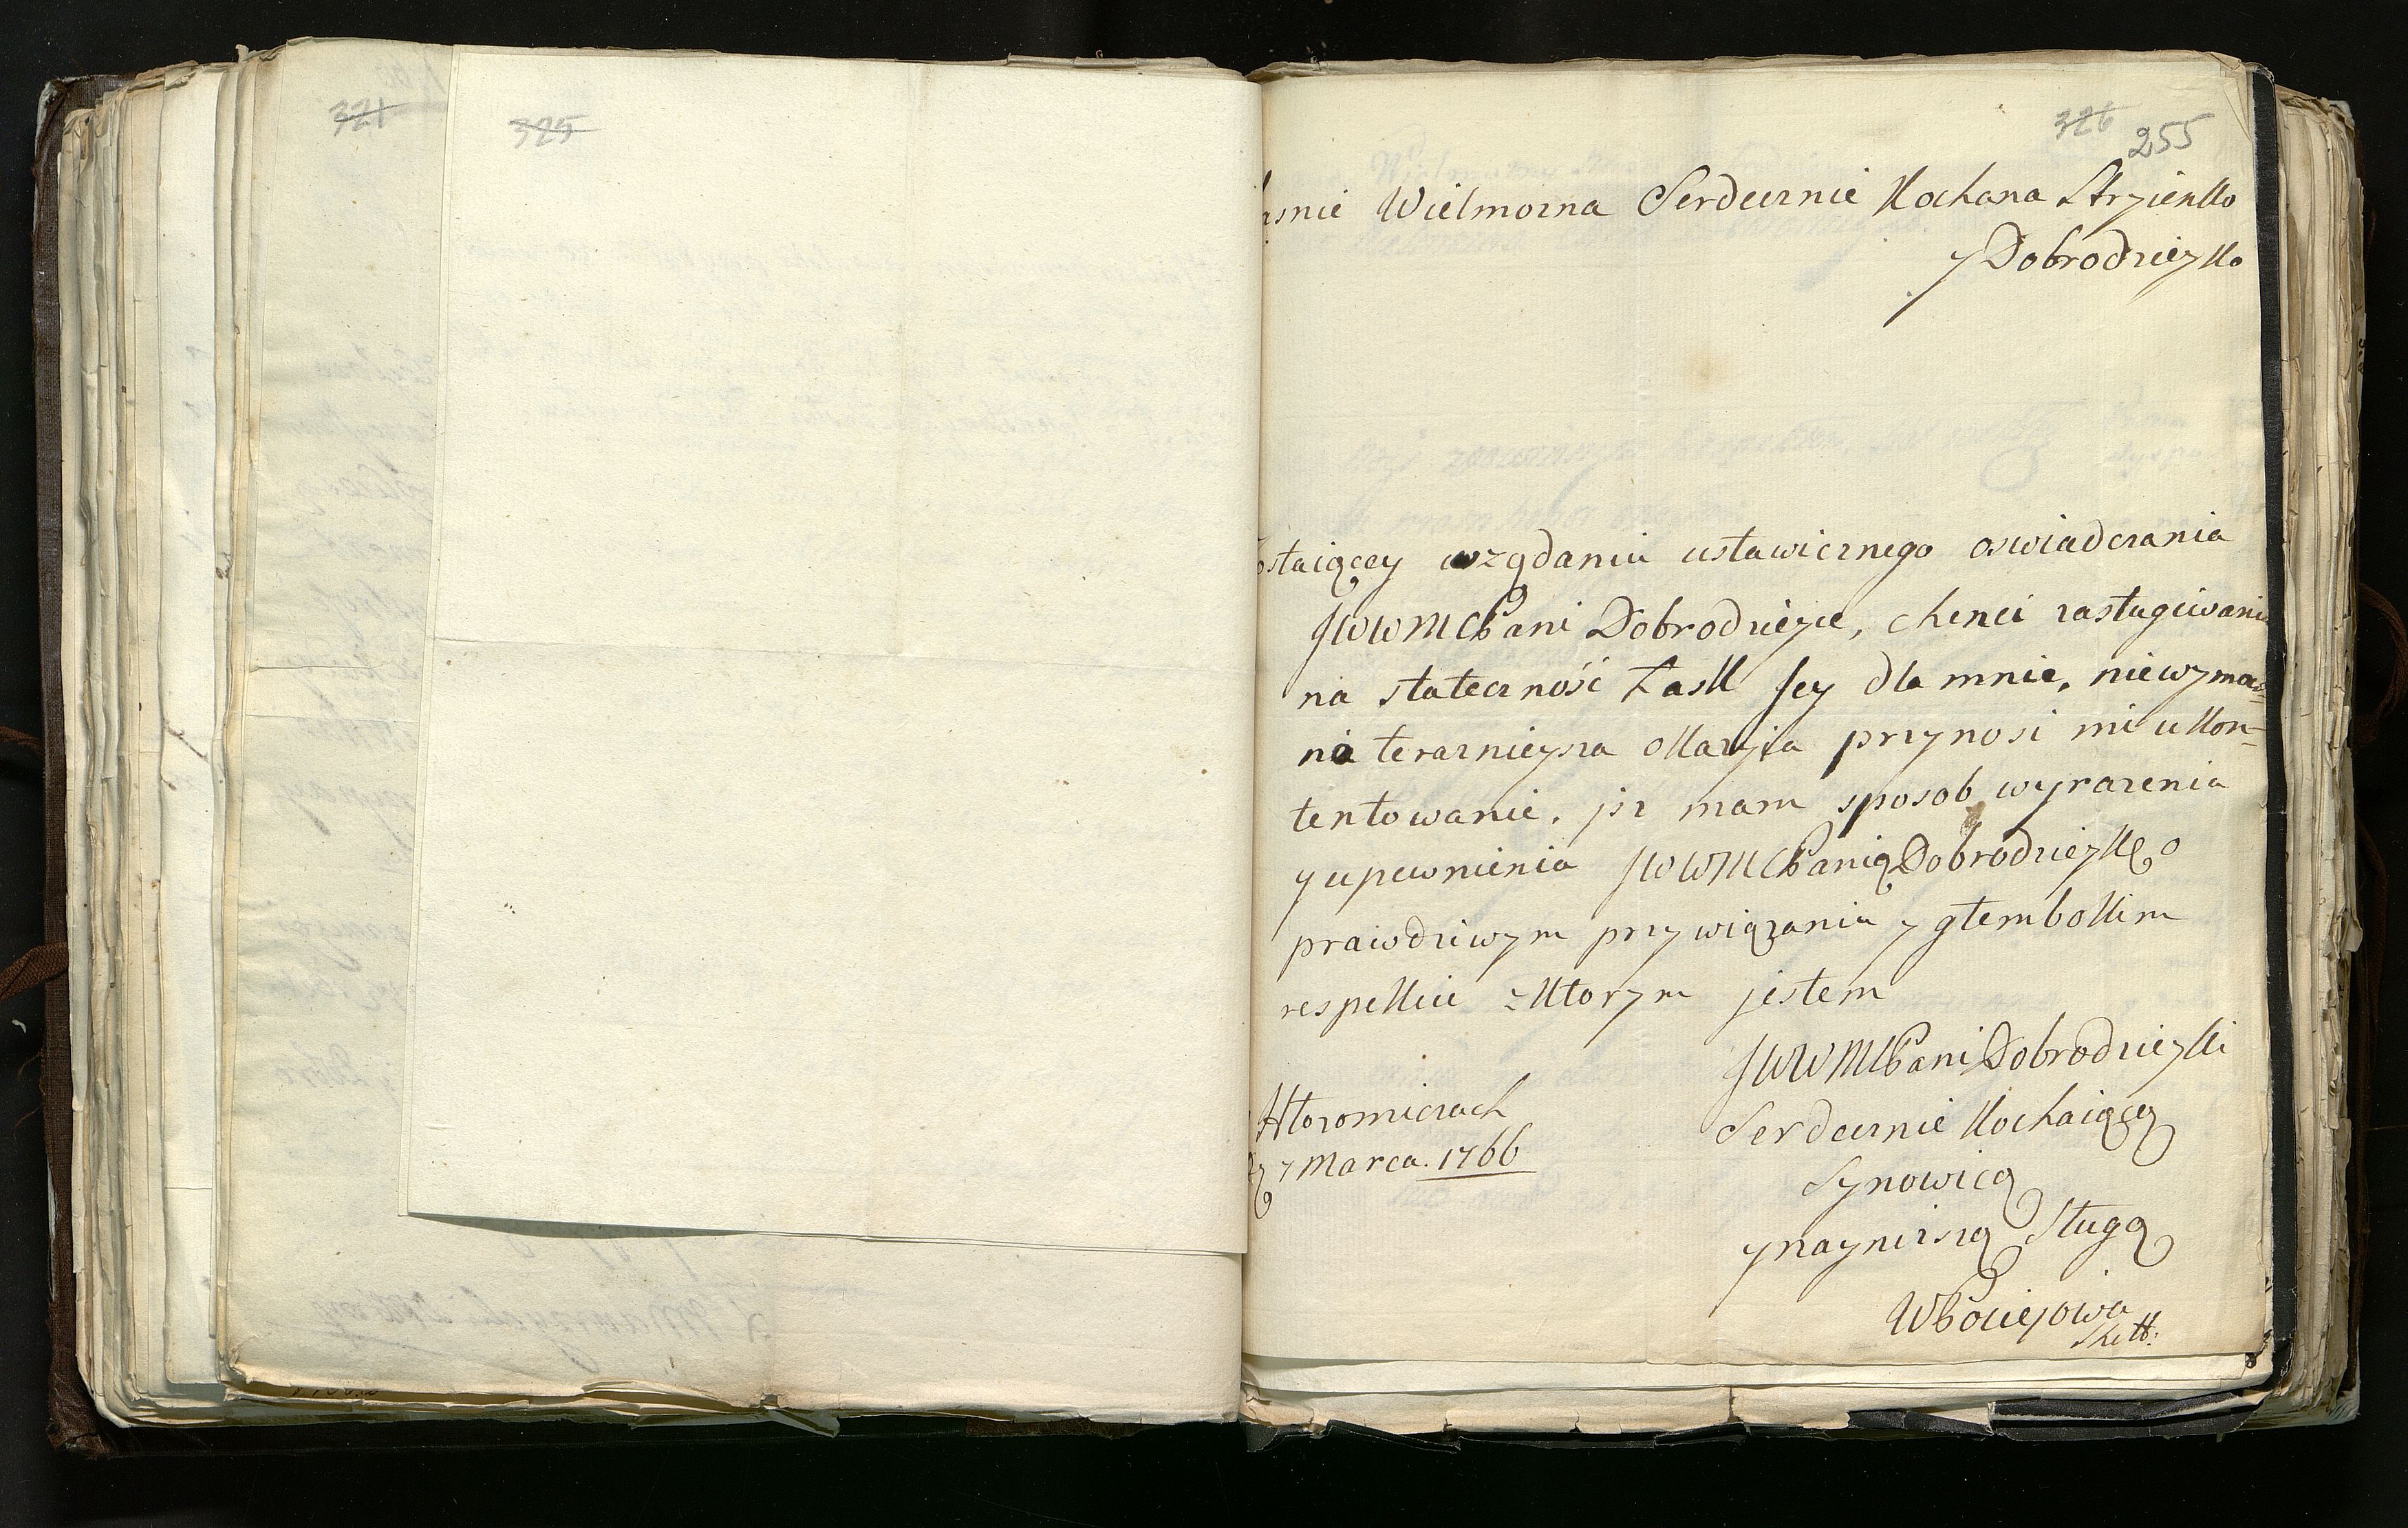 321
325
326 255
asnie Wielmozna Serdecznie Kochana Stryienko
y Dobrodzieyko
ostaiącey wządaniu ustawicznego oswiadczania
JWWMCPani Dobrodzieyce, chenci zasługiwania
na stateczność Łask Jey dla mnie, niewyma=
na teraznieysza okazyia przynosi mi ukon=
tentowanie, jz mam sposob wyrazenia
y upewnienia JWWMCPanią Dobrodzieykę o
prawdziwym przywiązaniu y głembokim
respekcie zktorym jestem
JWWMCPani Dobrodzieyki
Serdecznie Kochaiącą
Synowicą
ynaynizszą Sługą
7 Marca. 1766
WPociejowa